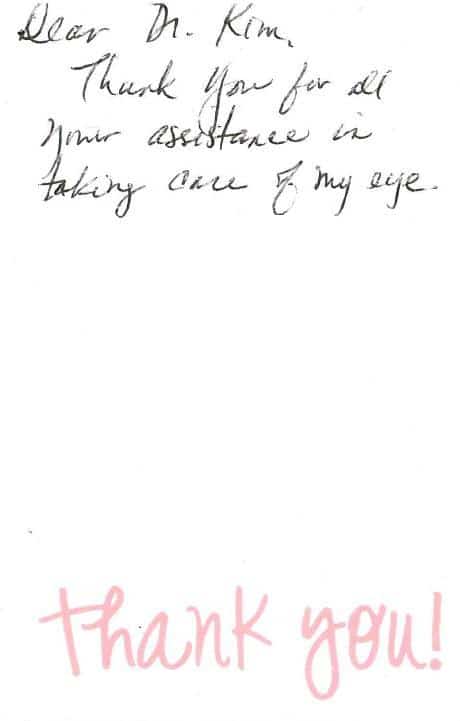 Dear Dr. Kim,
Thank you for all
your assistance in
taking care of my eye.
thank you!